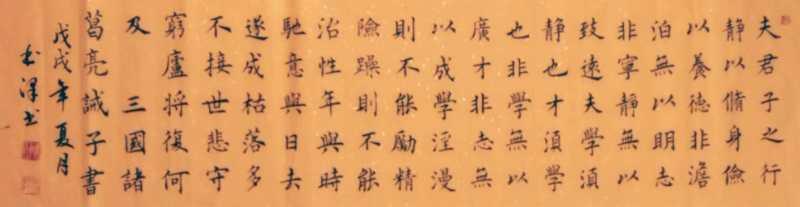 夫君子之行
靜以脩身儉
以養德非澹
泊無以明志
非寧靜無以
致遠夫學須
靜也才須學
也非學無以
廣才非志無
以成學淫漫
則不能勵精
險躁則不能
治性年與時
馳意與日去
遂成枯落多
不接世悲守
窮廬將復何
及 三國諸
葛亮誡子書
戊戌年夏月
书